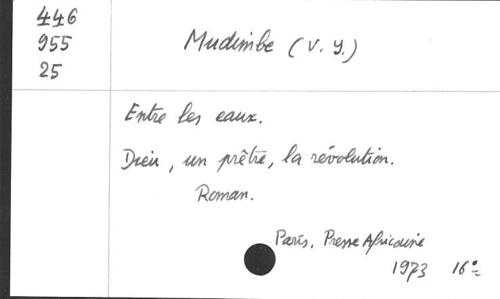 446
955
25
Mudimbe (V. Y.)
Entre les eaux.
Dieu, un prêtre, la révolution.
Roman.
Paris, Presse Africaine
1973 16°